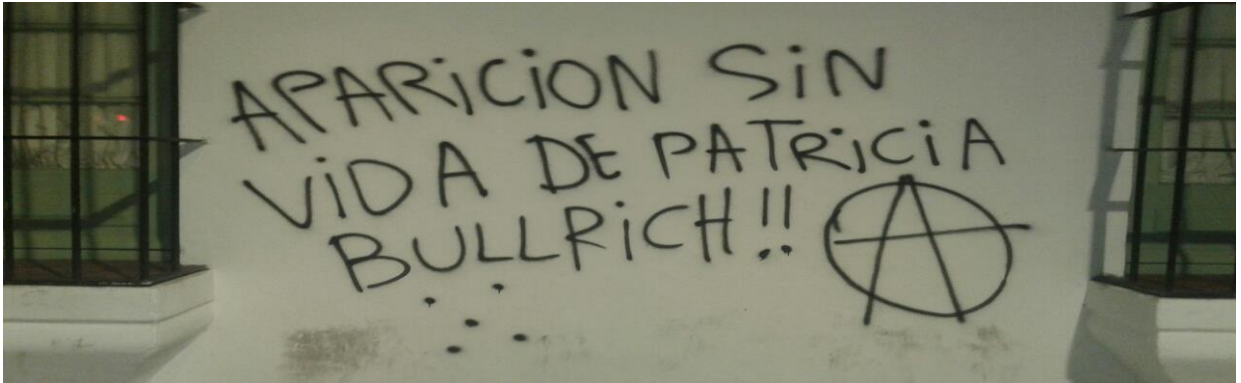 APARiCiON SiN
ViDA DE PATRiCiA
BULLRiCH!!